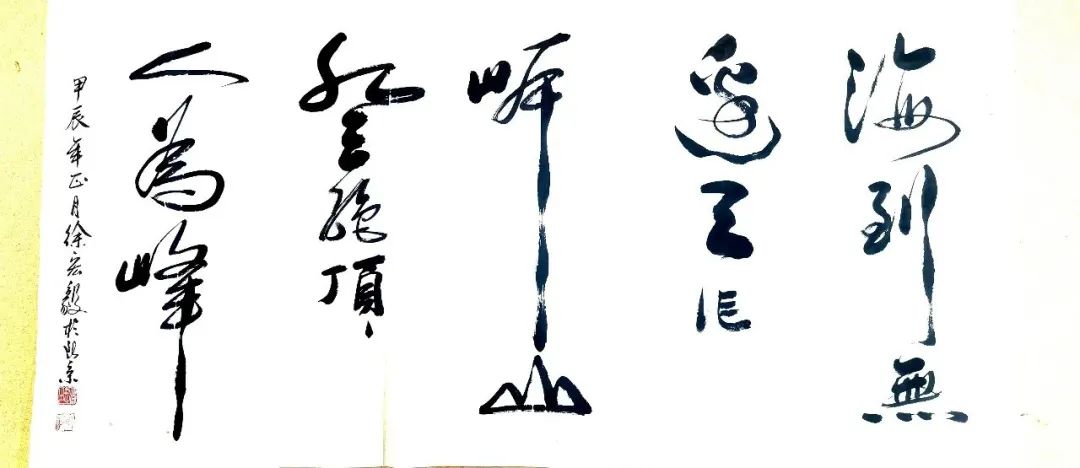 海到無
邊天作
岸山
登絕頂
人為峰
甲辰年正月徐宏毅於北京